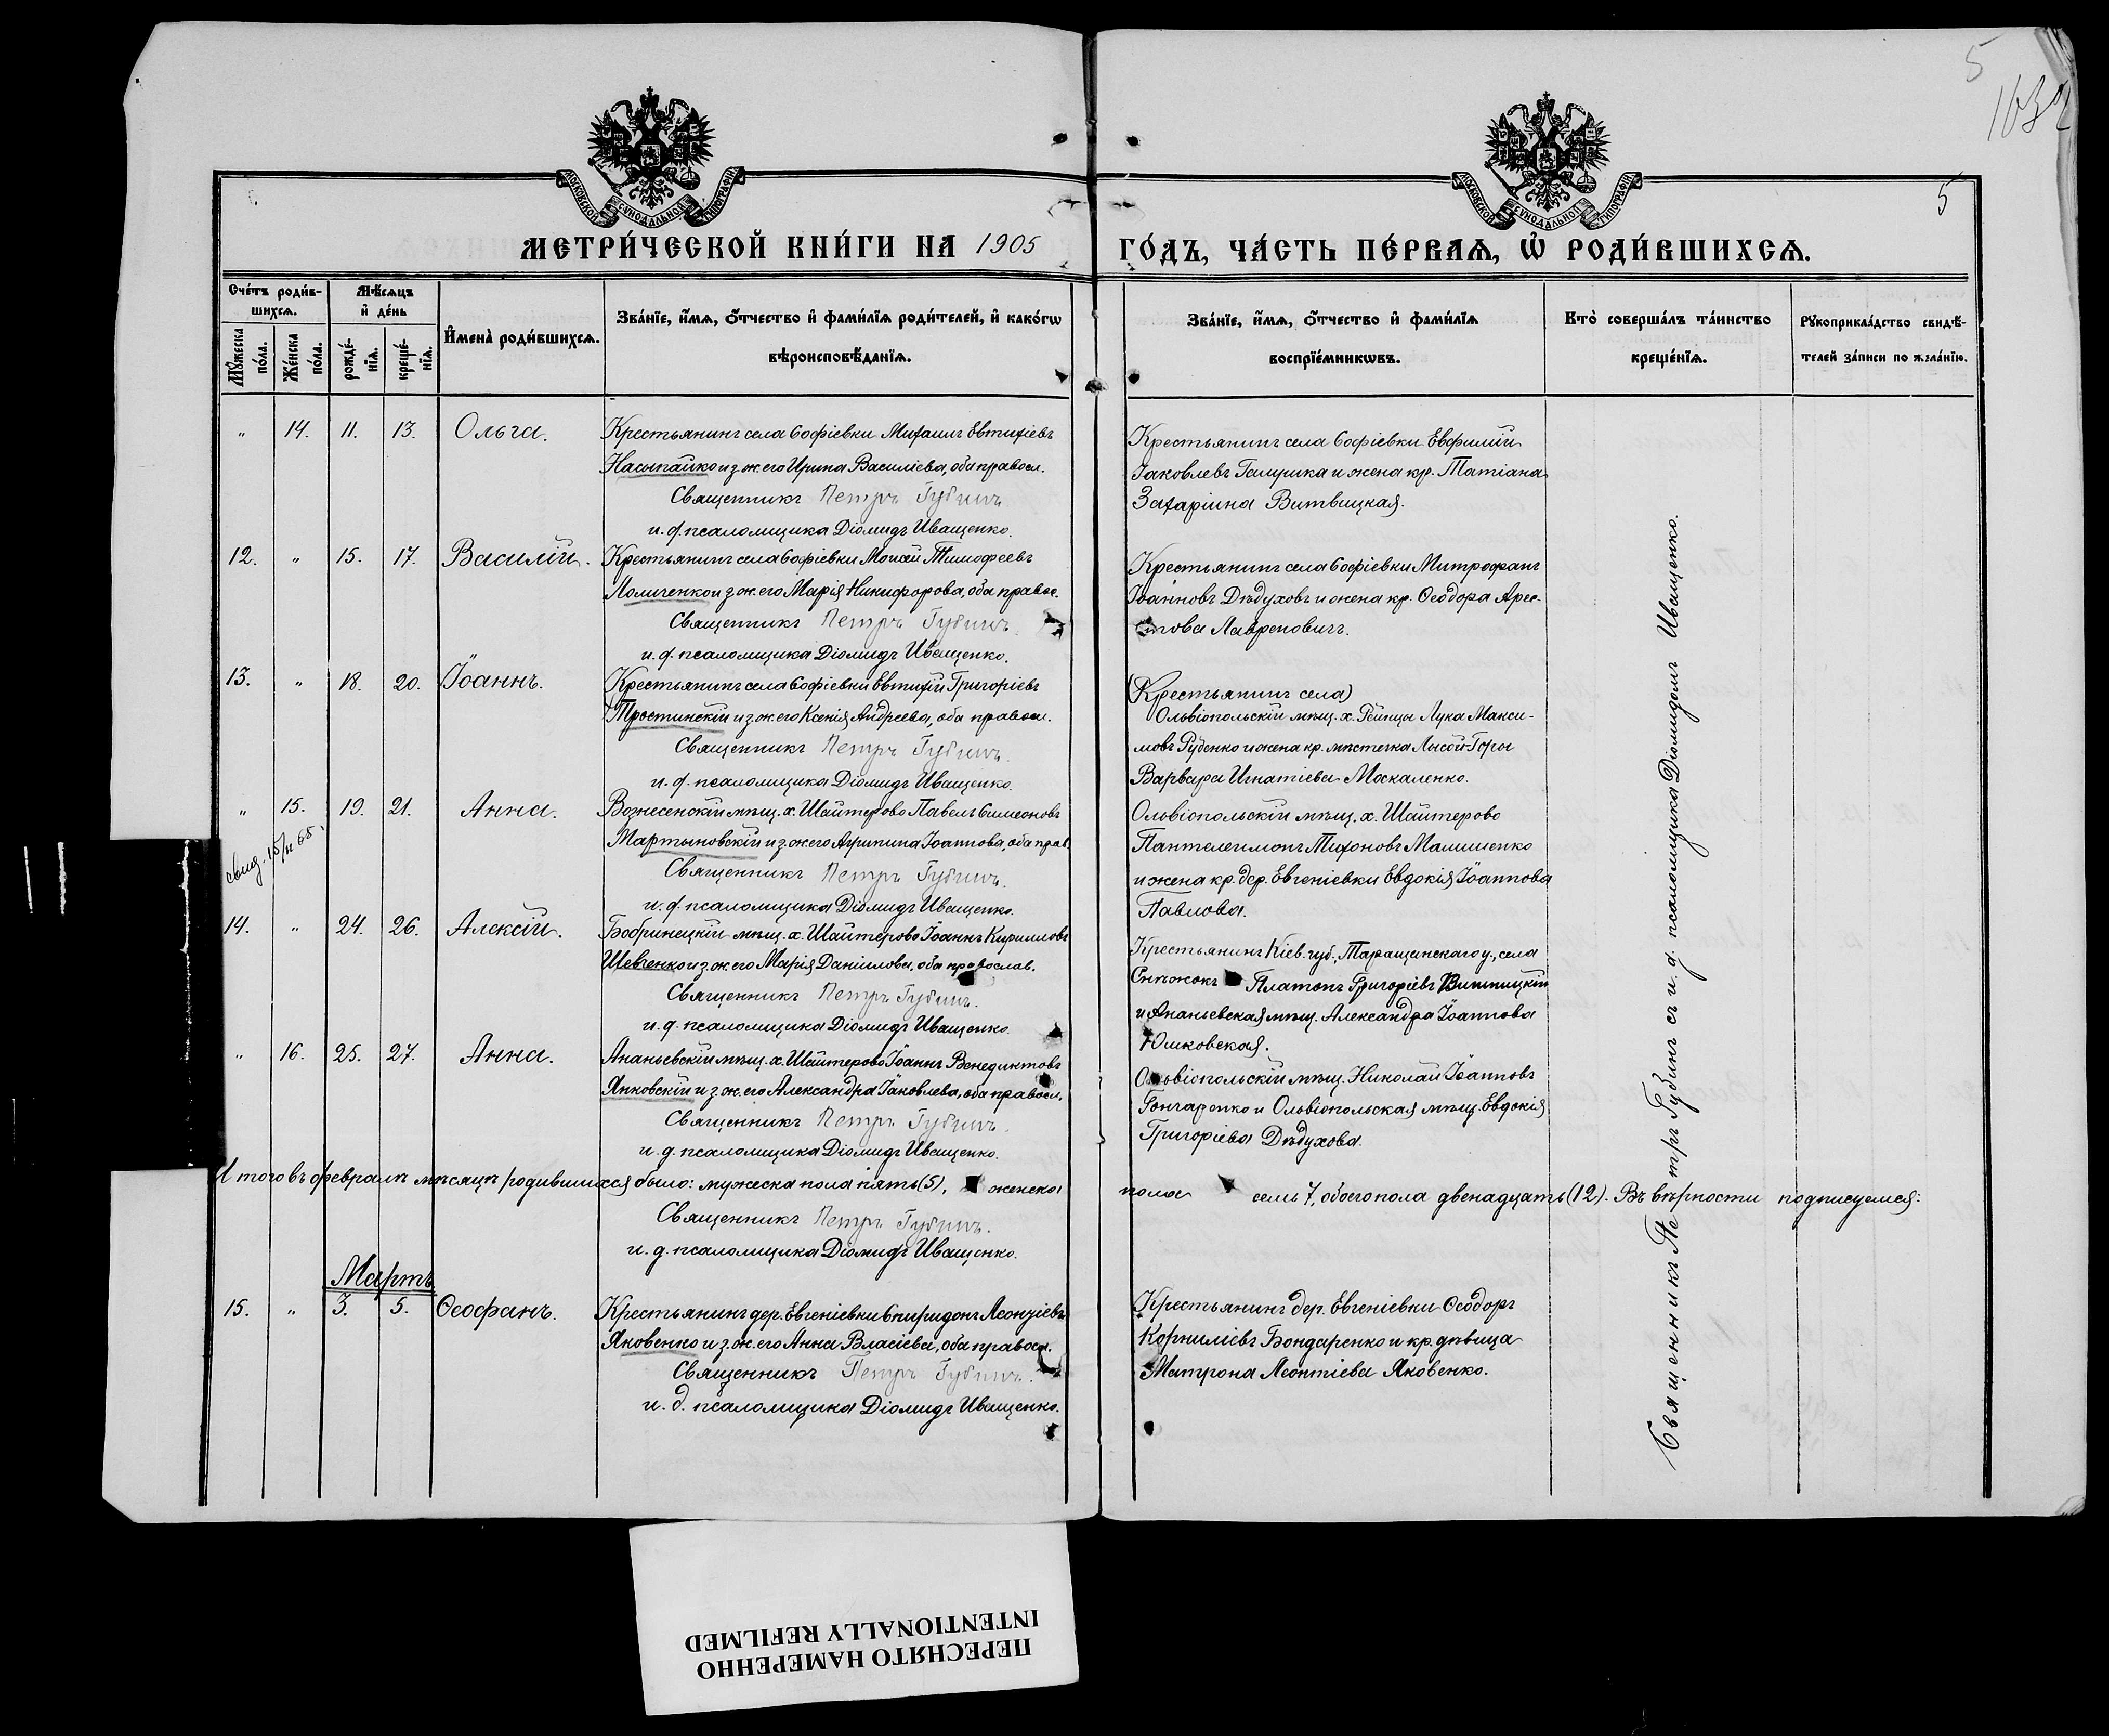 5
163
5
МОСКОВСКОЙ СѴНОДАЛЬНОЙ ТИПОГРАФІИ
МОСКОВСКОЙ СѴНОДАЛЬНОЙ ТИПОГРАФІИ
МЕТРИ́ЧЕСКОЙ КНИ́ГИ НА 1905
ГО́ДЪ, ЧА́СТЬ ПЕ́РВАѦ, Ѡ҆ РОДИ́ВШИХСѦ.
Сче́тъ роди́в-
шихсѧ.
Мѣ́сѧцъ
и҆ де́нь
Мꙋ́жеска по́ла.
Же́нска по́ла.
рожде́-
нїѧ.
креще́-
нїѧ.
И҆мена̀ роди́вшихсѧ.
Зва́нїе, и҆́мѧ, ѻ҆́тчество и҆ фами́лїѧ роди́телей, и҆ како́гѡ
вѣроисповѣ́данїѧ.
Зва́нїе, и҆́мѧ, ѻ҆́тчество и҆ фами́лїѧ
воспрїе́мникѡвъ.
Кто̀ соверша́лъ та́инство
креще́нїѧ.
Рꙋкоприкла́дство свидѣ́-
телей за́писи по жела́нїю.
" 14. 11. 13. Ольга. Крестьянинъ села Софіевки Михаилъ Евтихіевъ
Насыпайко и з. ж. его Ирина Василіева, оба правосл.
Священникъ Петръ Губинъ
и. д. псаломщика Діомидъ Иващенко.
Крестьянинъ села Софіевки Евфимій
Іаковлевъ Галушка и жена кр. Татіана
Захаріина Витвицкая.
12. " 15. 17. Василій. Крестьянинъ села Софіевки Моисей Тимофеевъ
Ломиченко и з. ж. его Марія Никифорова, оба правос.
Священникъ Петръ Губинъ
и. д. псаломщика Діомидъ Иващенко.
Крестьянинъ села Софіевки Митрофанъ
Іоанновъ Дѣдуховъ и жена кр. Ѳеодора Арес-
това Лавреновичъ.
13. " 18. 20. Іоаннъ. Крестьянинъ села Софіевки Евтихій Григоріевъ
Тростинскій и з. ж. его Ксенія Андреева, оба правосл.
Священникъ Петръ Губинъ.
и. д. псаломщика Діомидъ Иващенко.
(Крестьянинъ села)
Ольвіопольскій мѣщ. х. Рейнцы Лука Макси-
мовъ Руденко и жена кр. мѣстечка Лысой-Горы
Варвара Игнатіева Москаленко.
" 15. 19. 21. Анна. Вознесенскій мѣщ. х. Шайтерово Павелъ Симеоновъ
Мартыновскій и з. ж. его Агрипина Іоаннова, оба прав.
Священникъ Петръ Губинъ.
и. д. псаломщика Діомидъ Иващенко.
Ольвіопольскій мѣщ. х. Шайтерово
Пантелеимонъ Тихоновъ Малишенко
и жена кр. дер. Евгеніевки Евдокія Іоаннова
Павлова.
14. " 24. 26. Алексій. Бобринецкій мѣщ. х. Шайтерово Іоаннъ Кирилловъ
Шевченко и з. ж. его Марія Даніилова, оба православ.
Священникъ Петръ Губинъ.
и. д. псаломщика Діомидъ Иващенко.
Крестьянинъ Кіев. губ., Таращанскаго у., села
Снѣжокъ Платонъ Григоріевъ Винницкій
и Ананьевская мѣщ. Александра Іоаннова
Юшковская.
" 16. 25. 27. Анна. Ананьевскій мѣщ. х. Шайтерово Іоаннъ Венедиктовъ
Янковскій и з. ж. его Александра Іаковлева, оба правосл.
Священникъ Петръ Губинъ.
и. д. псаломщика Діомидъ Иващенко.
Ольвіопольскій мѣщ. Николай Іоанновъ
Гончаренко и Ольвіопольская мѣщ. Евдокія
Григоріева Дѣдухова.
Итого въ февралѣ мѣсяцѣ родившихся было: мужеска пола пять (5), женска
пола семь 7, обоего пола двенадцать (12). Въ вѣрности подписуемся:
Священникъ Петръ Губинъ.
и. д. псаломщика Діомидъ Иващенко.
Мартъ
15. " 3. 5. Ѳеофанъ. Крестьянинъ дер. Евгеніевки Спиридонъ Леонтіевъ
Яковенко и з. ж. его Анна Власіева, оба правосл.
Священникъ Петръ Губинъ.
и. д. псаломщика Діомидъ Иващенко.
Крестьянинъ дер. Евгеніевки Ѳеодоръ
Корниліевъ Бондаренко и кр. дѣвица
Матрона Леонтіева Яковенко.
Священникъ Петръ Губинъ съ и. д. псаломщика Діомидомъ Иващенко.
ПЕРЕСНЯТО НАМЕРЕННО
INTENTIONALLY REFILMED